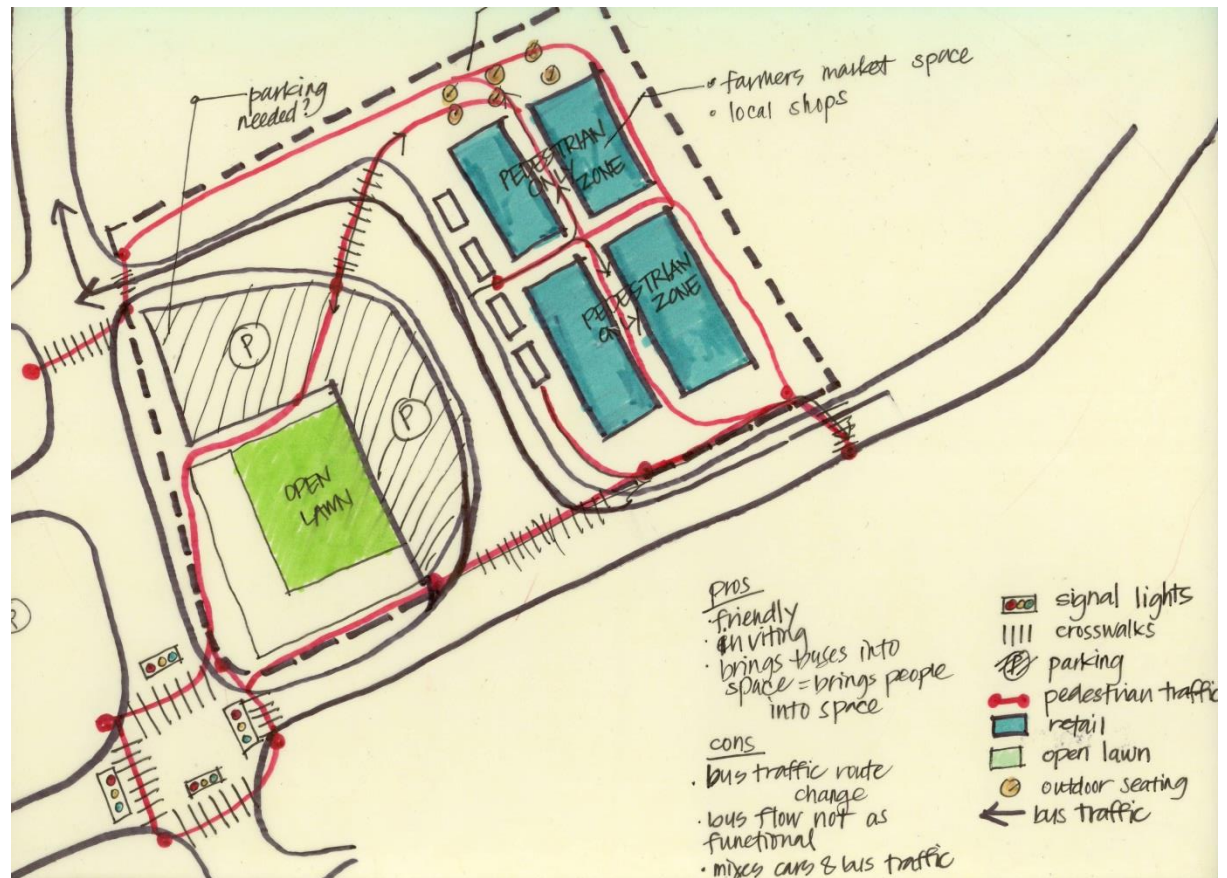 parking
needed?
• farmers market space
• local shops
PEDESTRIAN
ONLY
ZONE
PEDESTRIAN
ONLY
ZONE
P
P
OPEN
LAWN
pros
• friendly
• inviting
• brings buses into
space = brings people
into space
cons
• bus traffic route
change
• bus flow not as
functional
• mixes cars & bus traffic
signal lights
crosswalks
P parking
pedestrian traffic
retail
open lawn
outdoor seating
bus traffic